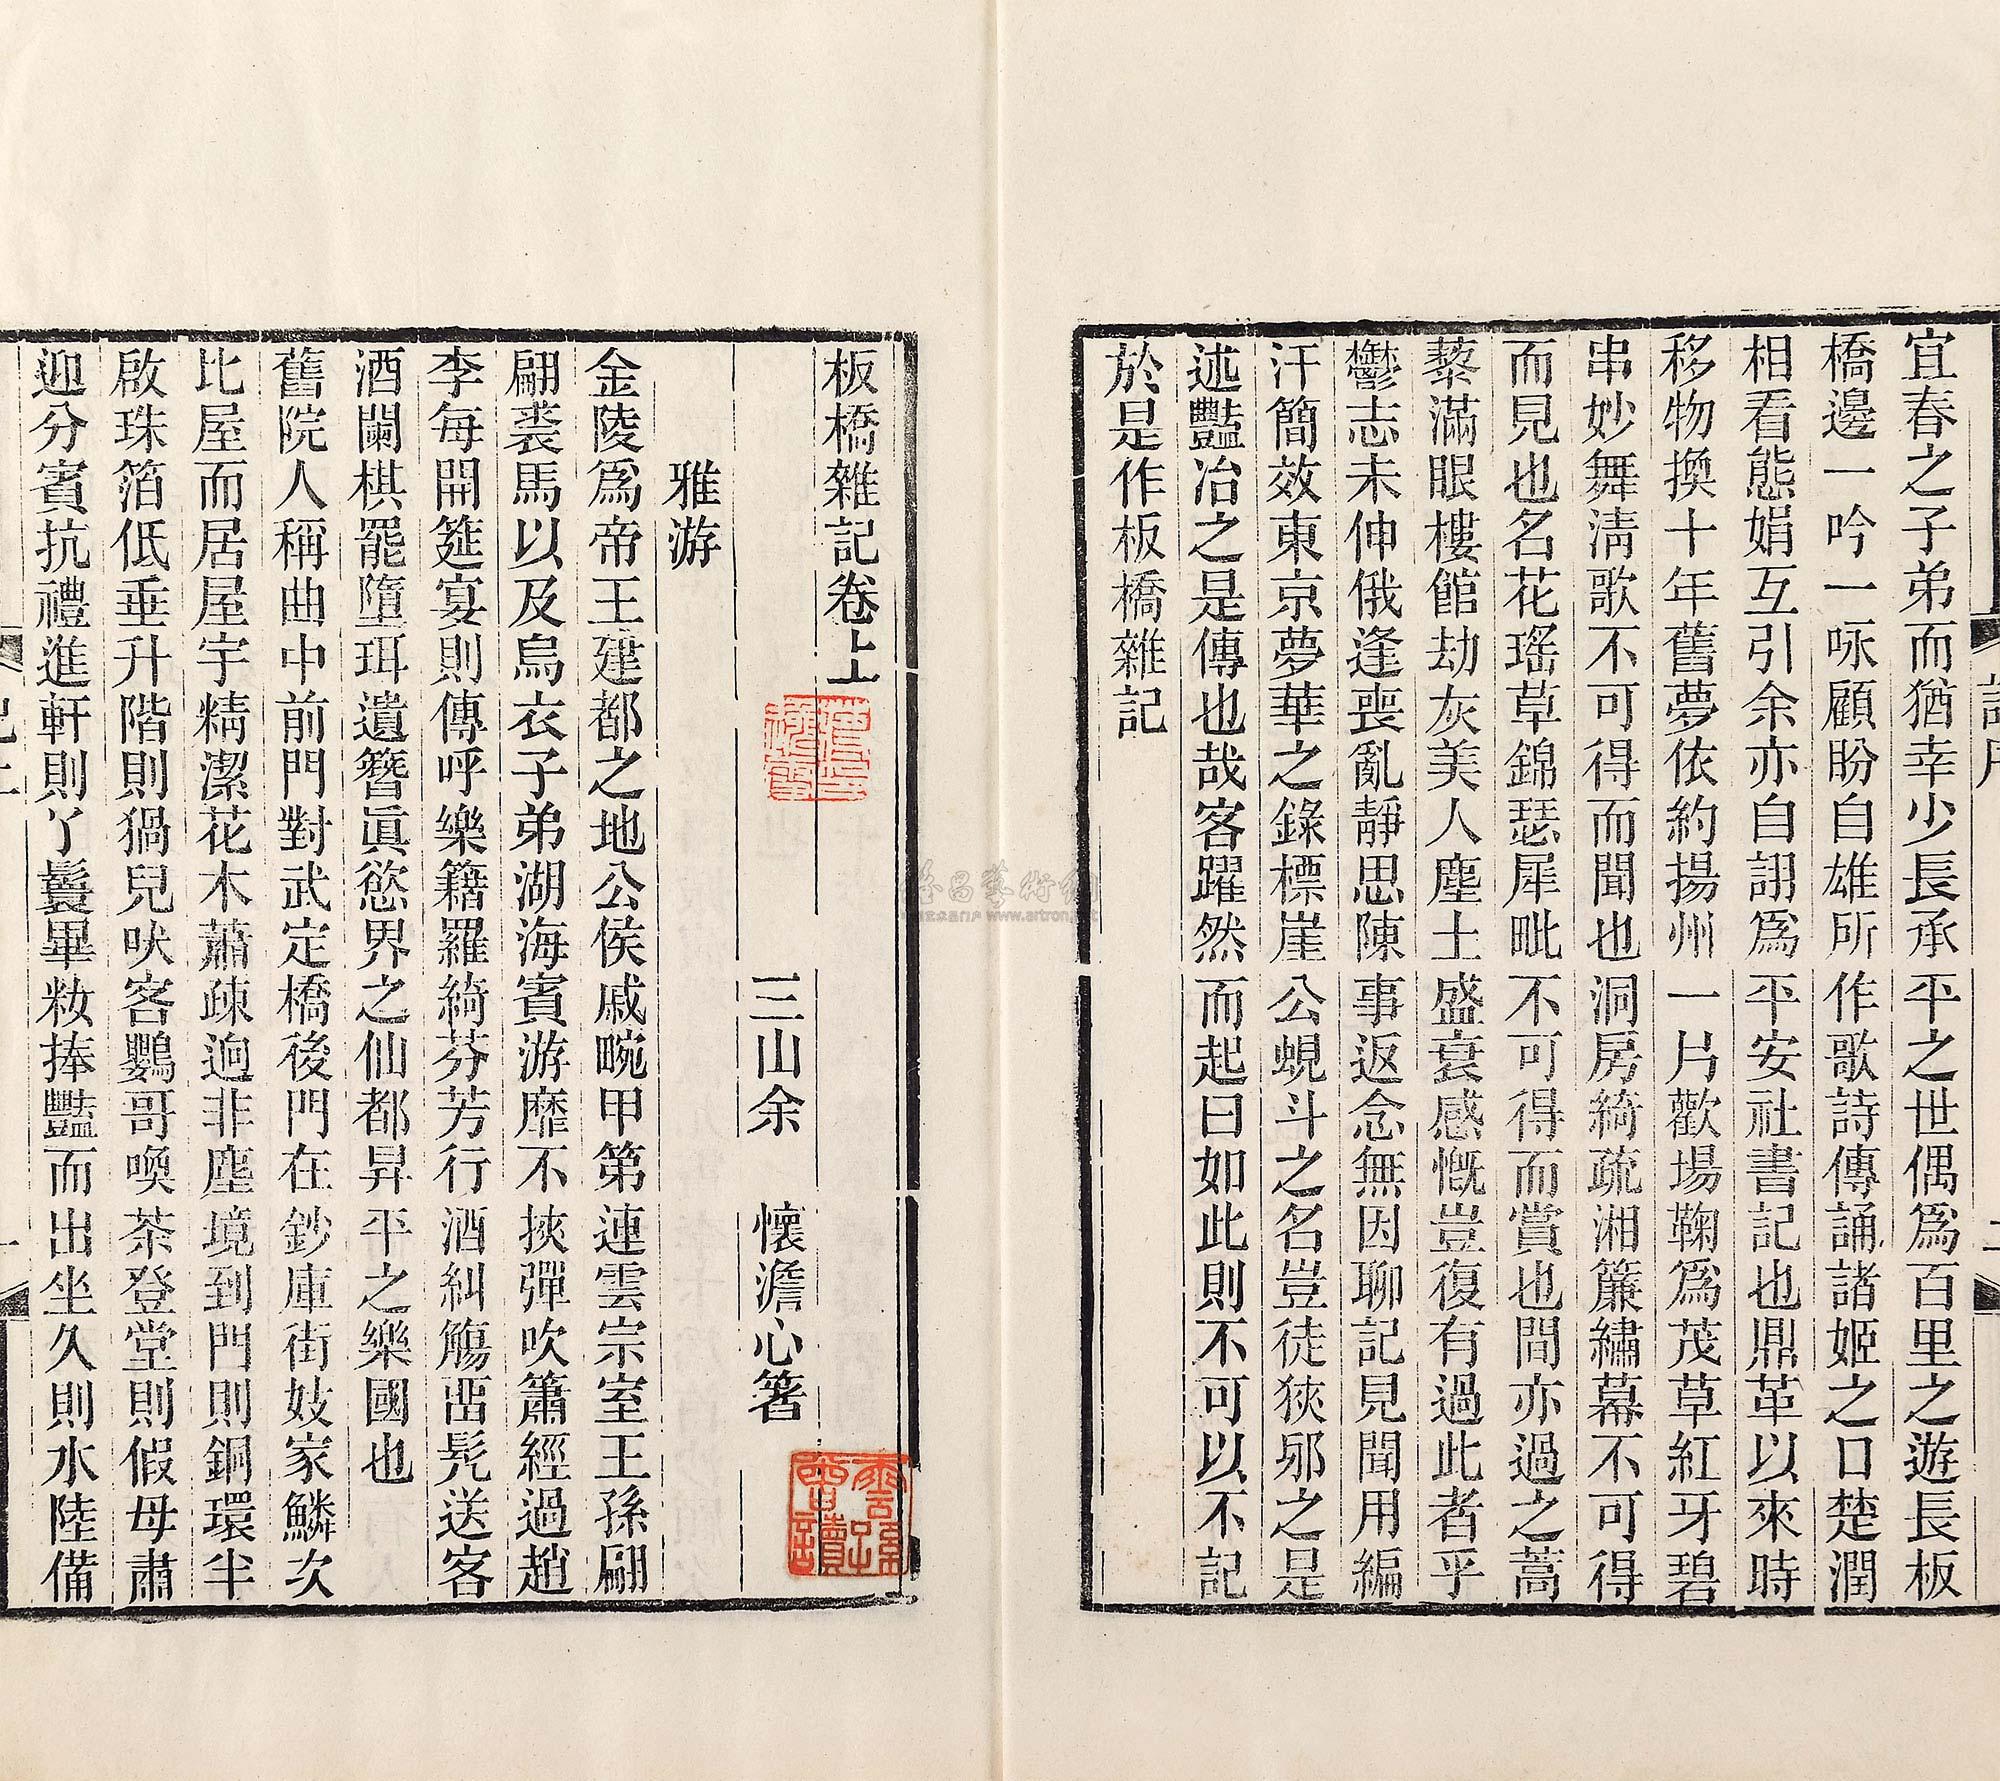 宜春之子弟而猶幸少長承平之世偶爲百里之遊長板
橋邊一吟一咏顧盼自雄所作歌詩傳誦諸姬之口楚潤
相看態娟互引余亦自詡爲平安社書記也鼎革以來時
移物換十年舊夢依約揚州一片歡場鞠爲茂草紅牙碧
串妙舞淸歌不可得而聞也洞房綺疏湘簾繡幕不可得
而見也名花瑤草錦瑟犀毗不可得而賞也間亦過之蒿
藜滿眼樓館劫灰美人塵土盛衰感慨豈復有過此者乎
鬱志未伸俄逢喪亂靜思陳事返念無因聊記見聞用編
汗簡效東京夢華之錄標崖公蜆斗之名豈徒狹邪之是
述豔冶之是傳也哉客躍然而起曰如此則不可以不記
於是作板橋雜記
板橋雜記卷上
三山余 懷澹心箸
雅游
金陵爲帝王建都之地公侯戚畹甲第連雲宗室王孫翩
翩裘馬以及烏衣子弟湖海賓游靡不挾彈吹簫經過趙
李每開筵宴則傳呼樂籍羅綺芬芳行酒糾觴畱髡送客
酒闌棋罷墮珥遺簪眞慾界之仙都昇平之樂國也
舊院人稱曲中前門對武定橋後門在鈔庫街妓家鱗次
比屋而居屋宇精潔花木蕭疎逈非塵境到門則銅環半
啟珠箔低垂升階則猧兒吠客鸚哥喚茶登堂則假母肅
迎分賓抗禮進軒則丫鬟畢妝捧豔而出坐久則水陸備
www.artron.net